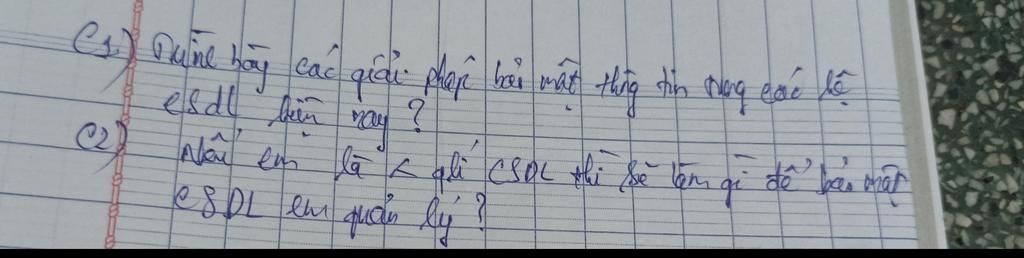 C1) Trình bày các giải pháp bảo mật thông tin trong các hệ
CSDL hiện nay?
C2) Nếu em là < qlí CSDL thì sẽ làm gì để bảo mật
CSDL em quản lý?